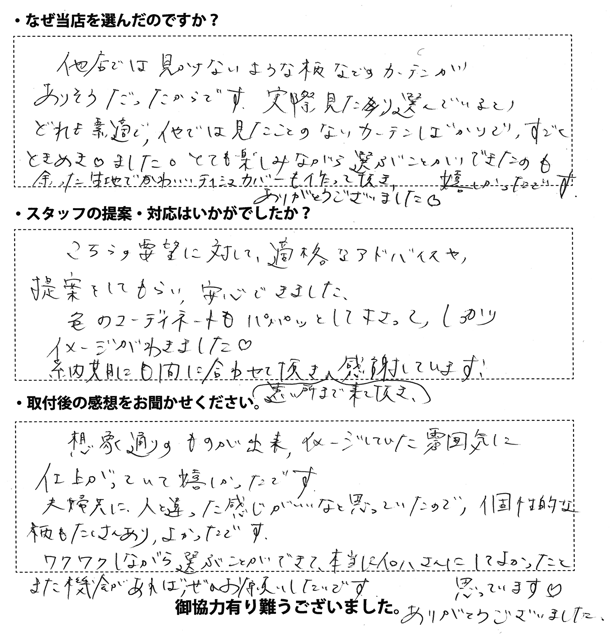 ・なぜ当店を選んだのですか？
他店では見かけないような柄などのカーテンが
ありそうだったからです。実際見たり選んでいると、
どれも素適で、他では見たことのないカーテンばかりで、すごく
ときめき♡ました。とても楽しみながら選ぶことができたのも
余った生地でかわいいティシュカバーも作って頂き、嬉しかったです。
ありがとうございました♡
・スタッフの提案・対応はいかがでしたか？
こちらの要望に対して、適格なアドバイスや、
提案をしてもらい、安心できました。
色のコーディネートもパパパッとして下さって、しっかり
イメージがわきました♡
納期にも間に合わせて頂き、感謝しています！
遠い所まで来て頂き、
・取付後の感想をお聞かせください。
想像通りのものが出来、イメージしていた雰囲気に
仕上がっていて嬉しかったです。
夫婦共に、人と違った感じがいいなと思っていたので、個性的な
柄もたくさんあり、よかったです。
ワクワクしながら選ぶことができて、本当にイロハさんにしてよかったと
また機会があれば、ぜひお願いしたいです 思っています♡
御協力有り難うございました。
ありがとうございました。